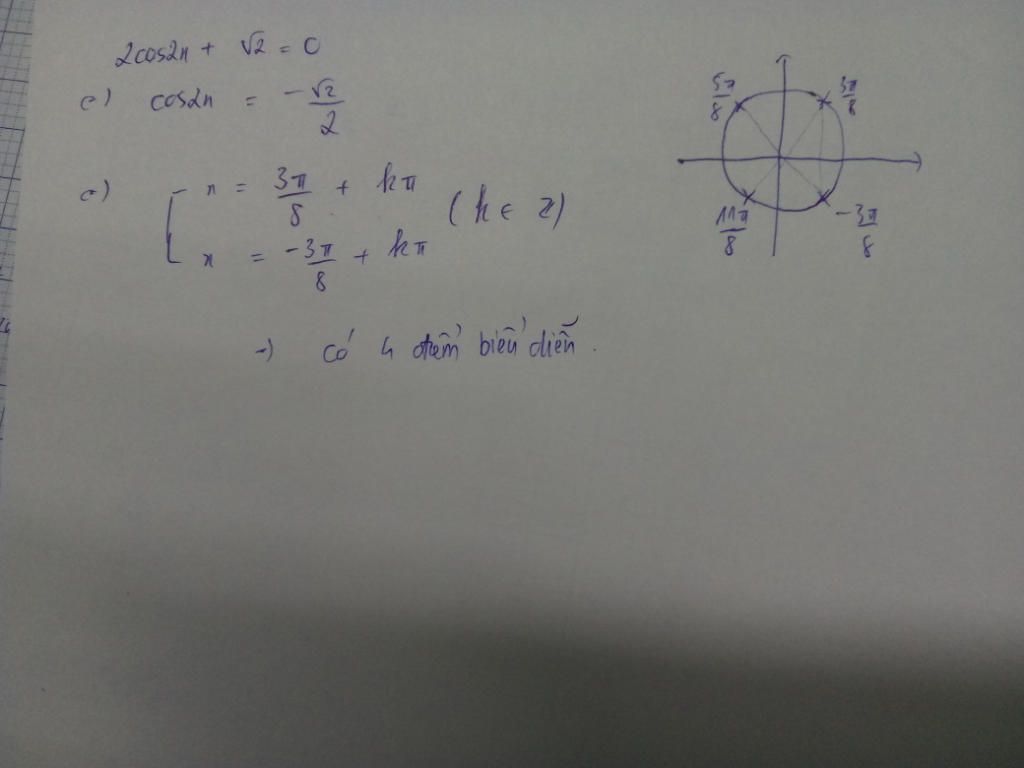 2cos2x + √2 = 0
(=) cos2x = -√2/2
(=) [ x = 3π/8 + kπ
x = -3π/8 + kπ
(k ∈ Z)
=) có 4 điểm biểu diễn.
5π/8
3π/8
11π/8
-3π/8